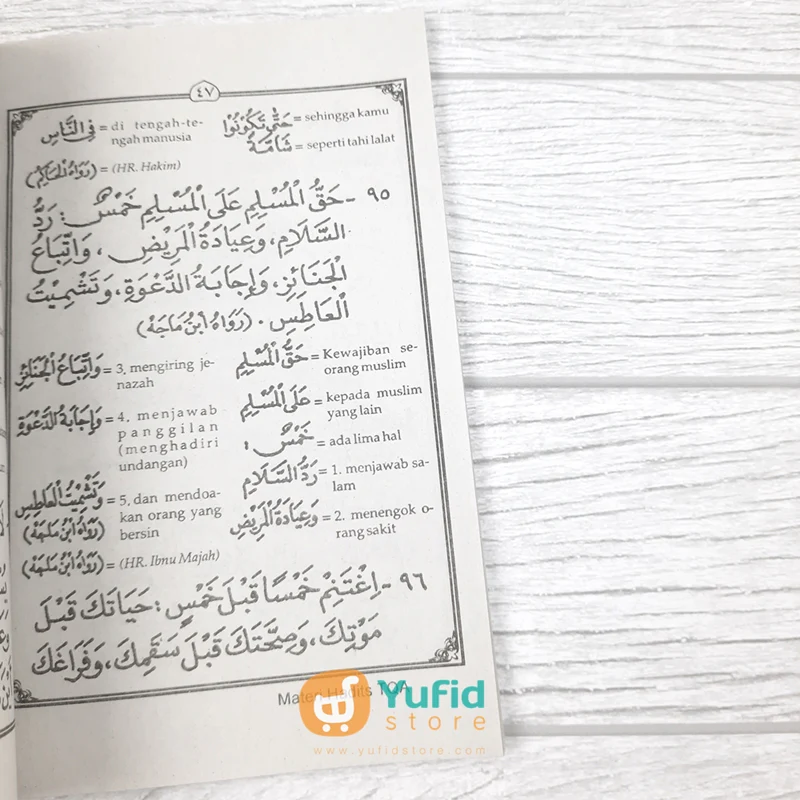 ٤٧
حَتَّى تَكُوْنُوْا = sehingga kamu
شَامَةٌ = seperti tahi lalat
فِي النَّاسِ = di tengah-te-
ngah manusia
(رَوَاهُ الْحَاكِمُ) = (HR. Hakim)
٩٥ - حَقُّ الْمُسْلِمِ عَلَى الْمُسْلِمِ خَمْسٌ : رَدُّ
السَّلَامِ، وَعِيَادَةُ الْمَرِيْضِ، وَاتِّبَاعُ
الْجَنَائِزِ، وَإِجَابَةُ الدَّعْوَةِ، وَتَشْمِيْتُ
الْعَاطِسِ. (رَوَاهُ ابْنُ مَاجَهْ)
حَقُّ الْمُسْلِمِ = Kewajiban se-
orang muslim
عَلَى الْمُسْلِمِ = kepada muslim
yang lain
خَمْسٌ : = ada lima hal
رَدُّ السَّلَامِ = 1. menjawab sa-
lam
وَعِيَادَةُ الْمَرِيْضِ = 2. menengok o-
rang sakit
وَاتِّبَاعُ الْجَنَائِزِ = 3. mengiring je-
nazah
وَإِجَابَةُ الدَّعْوَةِ = 4. menjawab
panggilan
(menghadiri
undangan)
وَتَشْمِيْتُ الْعَاطِسِ = 5. dan mendoa-
(رَوَاهُ ابْنُ مَاجَهْ) kan orang yang
bersin
(رَوَاهُ ابْنُ مَاجَهْ) = (HR. Ibnu Majah)
٩٦ - اِغْتَنِمْ خَمْسًا قَبْلَ خَمْسٍ : حَيَاتَكَ قَبْلَ
مَوْتِكَ، وَصِحَّتَكَ قَبْلَ سَقَمِكَ، وَفَرَاغَكَ
Materi Hadits TQA
Yufid
store
www.yufidstore.com